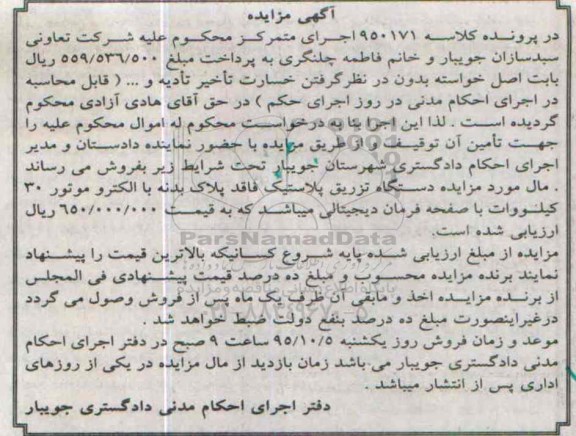 آگهی مزایده
در پرونده کلاسه ۹۵۰۱۷۱ اجرای متمرکز محکوم علیه شرکت تعاونی
سبدسازان جویبار و خانم فاطمه چلنگری به پرداخت مبلغ ۵۵۹/۵۳۶/۵۰۰ ریال
بابت اصل خواسته بدون در نظرگرفتن خسارت تأخیر تأدیه و ... ( قابل محاسبه
در اجرای احکام مدنی در روز اجرای حکم ) در حق آقای هادی آزادی محکوم
گردیده است . لذا این اجرا بنا به درخواست محکوم له اموال محکوم علیه را
جهت تأمین آن توقیف و از طریق مزایده با حضور نماینده دادستان و مدیر
اجرای احکام دادگستری شهرستان جویبار تحت شرایط زیر بفروش می رساند
. مال مورد مزایده دستگاه تزریق پلاستیک فاقد پلاک بدنه با الکترو موتور ۳۰
کیلووات با صفحه فرمان دیجیتالی میباشد که به قیمت ۶۵۰/۰۰۰/۰۰۰ ریال
ارزیابی شده است.
ParsNamadData
مزایده از مبلغ ارزیابی شده پایه شروع کسانیکه بالاترین قیمت را پیشنهاد
نمایند برنده مزایده محسوب و مبلغ ده درصد قیمت پیشنهادی فی المجلس
از برنده مزایده اخذ و مابقی آن ظرف یک ماه پس از فروش وصول می گردد
درغیراینصورت مبلغ ده درصد بنفع دولت ضبط خواهد شد .
موعد و زمان فروش روز یکشنبه ۹۵/۱۰/۵ ساعت ۹ صبح در دفتر اجرای احکام
مدنی دادگستری جویبار می باشد زمان بازدید از مال مزایده در یکی از روزهای
اداری پس از انتشار میباشد .
دفتر اجرای احکام مدنی دادگستری جویبار